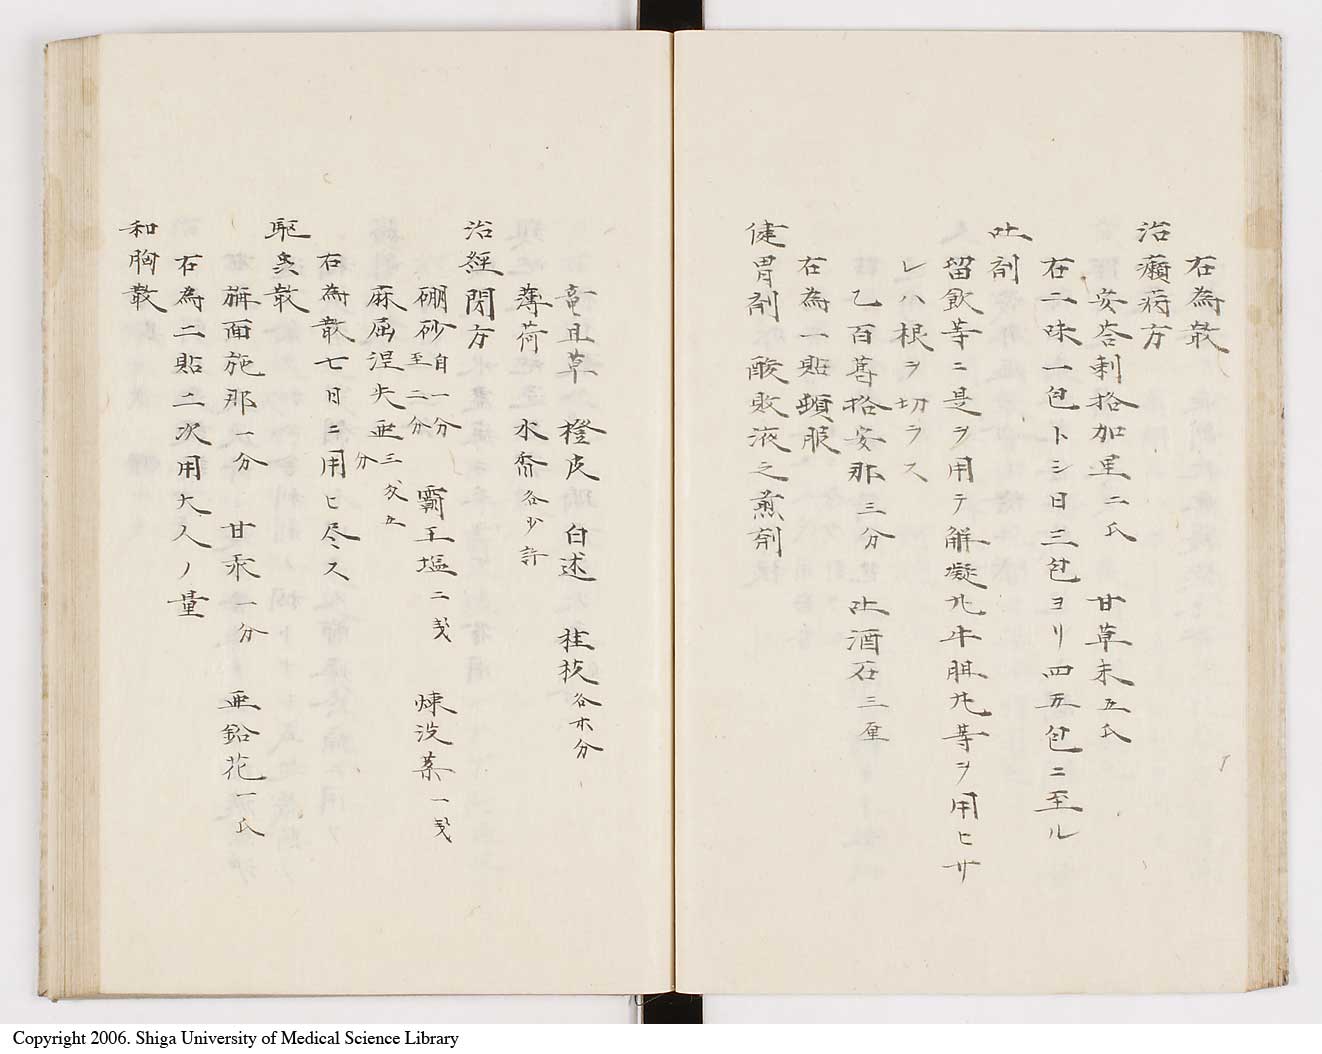 右為散
治癩病方
安答剌拾加里二氏 甘草末五氏
右二味一包トシ日三包ヨリ四五包ニ至ル
吐剤
留飲等ニ是ヲ用テ解凝丸牛胆丸等ヲ用ヒサ
レハ根ヲ切ラス
乙百葛拾安那三分 吐酒石三厘
右為一貼頓服
健胃剤 酸敗液之煎剤
竜且草 橙皮 白述 桂枝各木分
薄荷 水香各少許
治經閉方
硼砂自一分至二分 霸王塩二戔 煉洗薬一戔
麻屈涅矢亜三分五分
右為散七日ニ用ヒ尽ス
駆虫散
旃面施那一分 甘汞一分 亜鉛花一氏
右為二貼二次用大人ノ量
和胸散
Copyright 2006. Shiga University of Medical Science Library